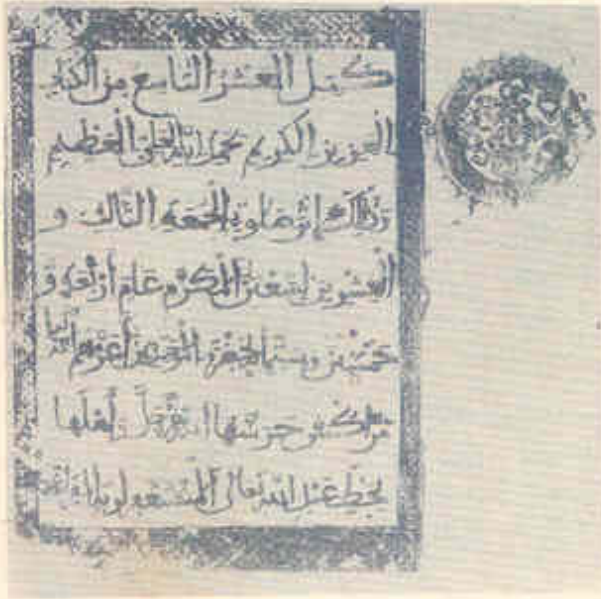 كمل العشر التاسع من الكتاب
العزيز الكريم بحمد الله العلي العظيم
وذلك إثر صلوة الجمعة الثالث و
العشرين لشعبن المكرم عام أربعة و
خمسين وستمائة بحضرة الموحدين أعزهم الله
مراكش حرسها الله وأهلها
بخط عبد الله تعالى